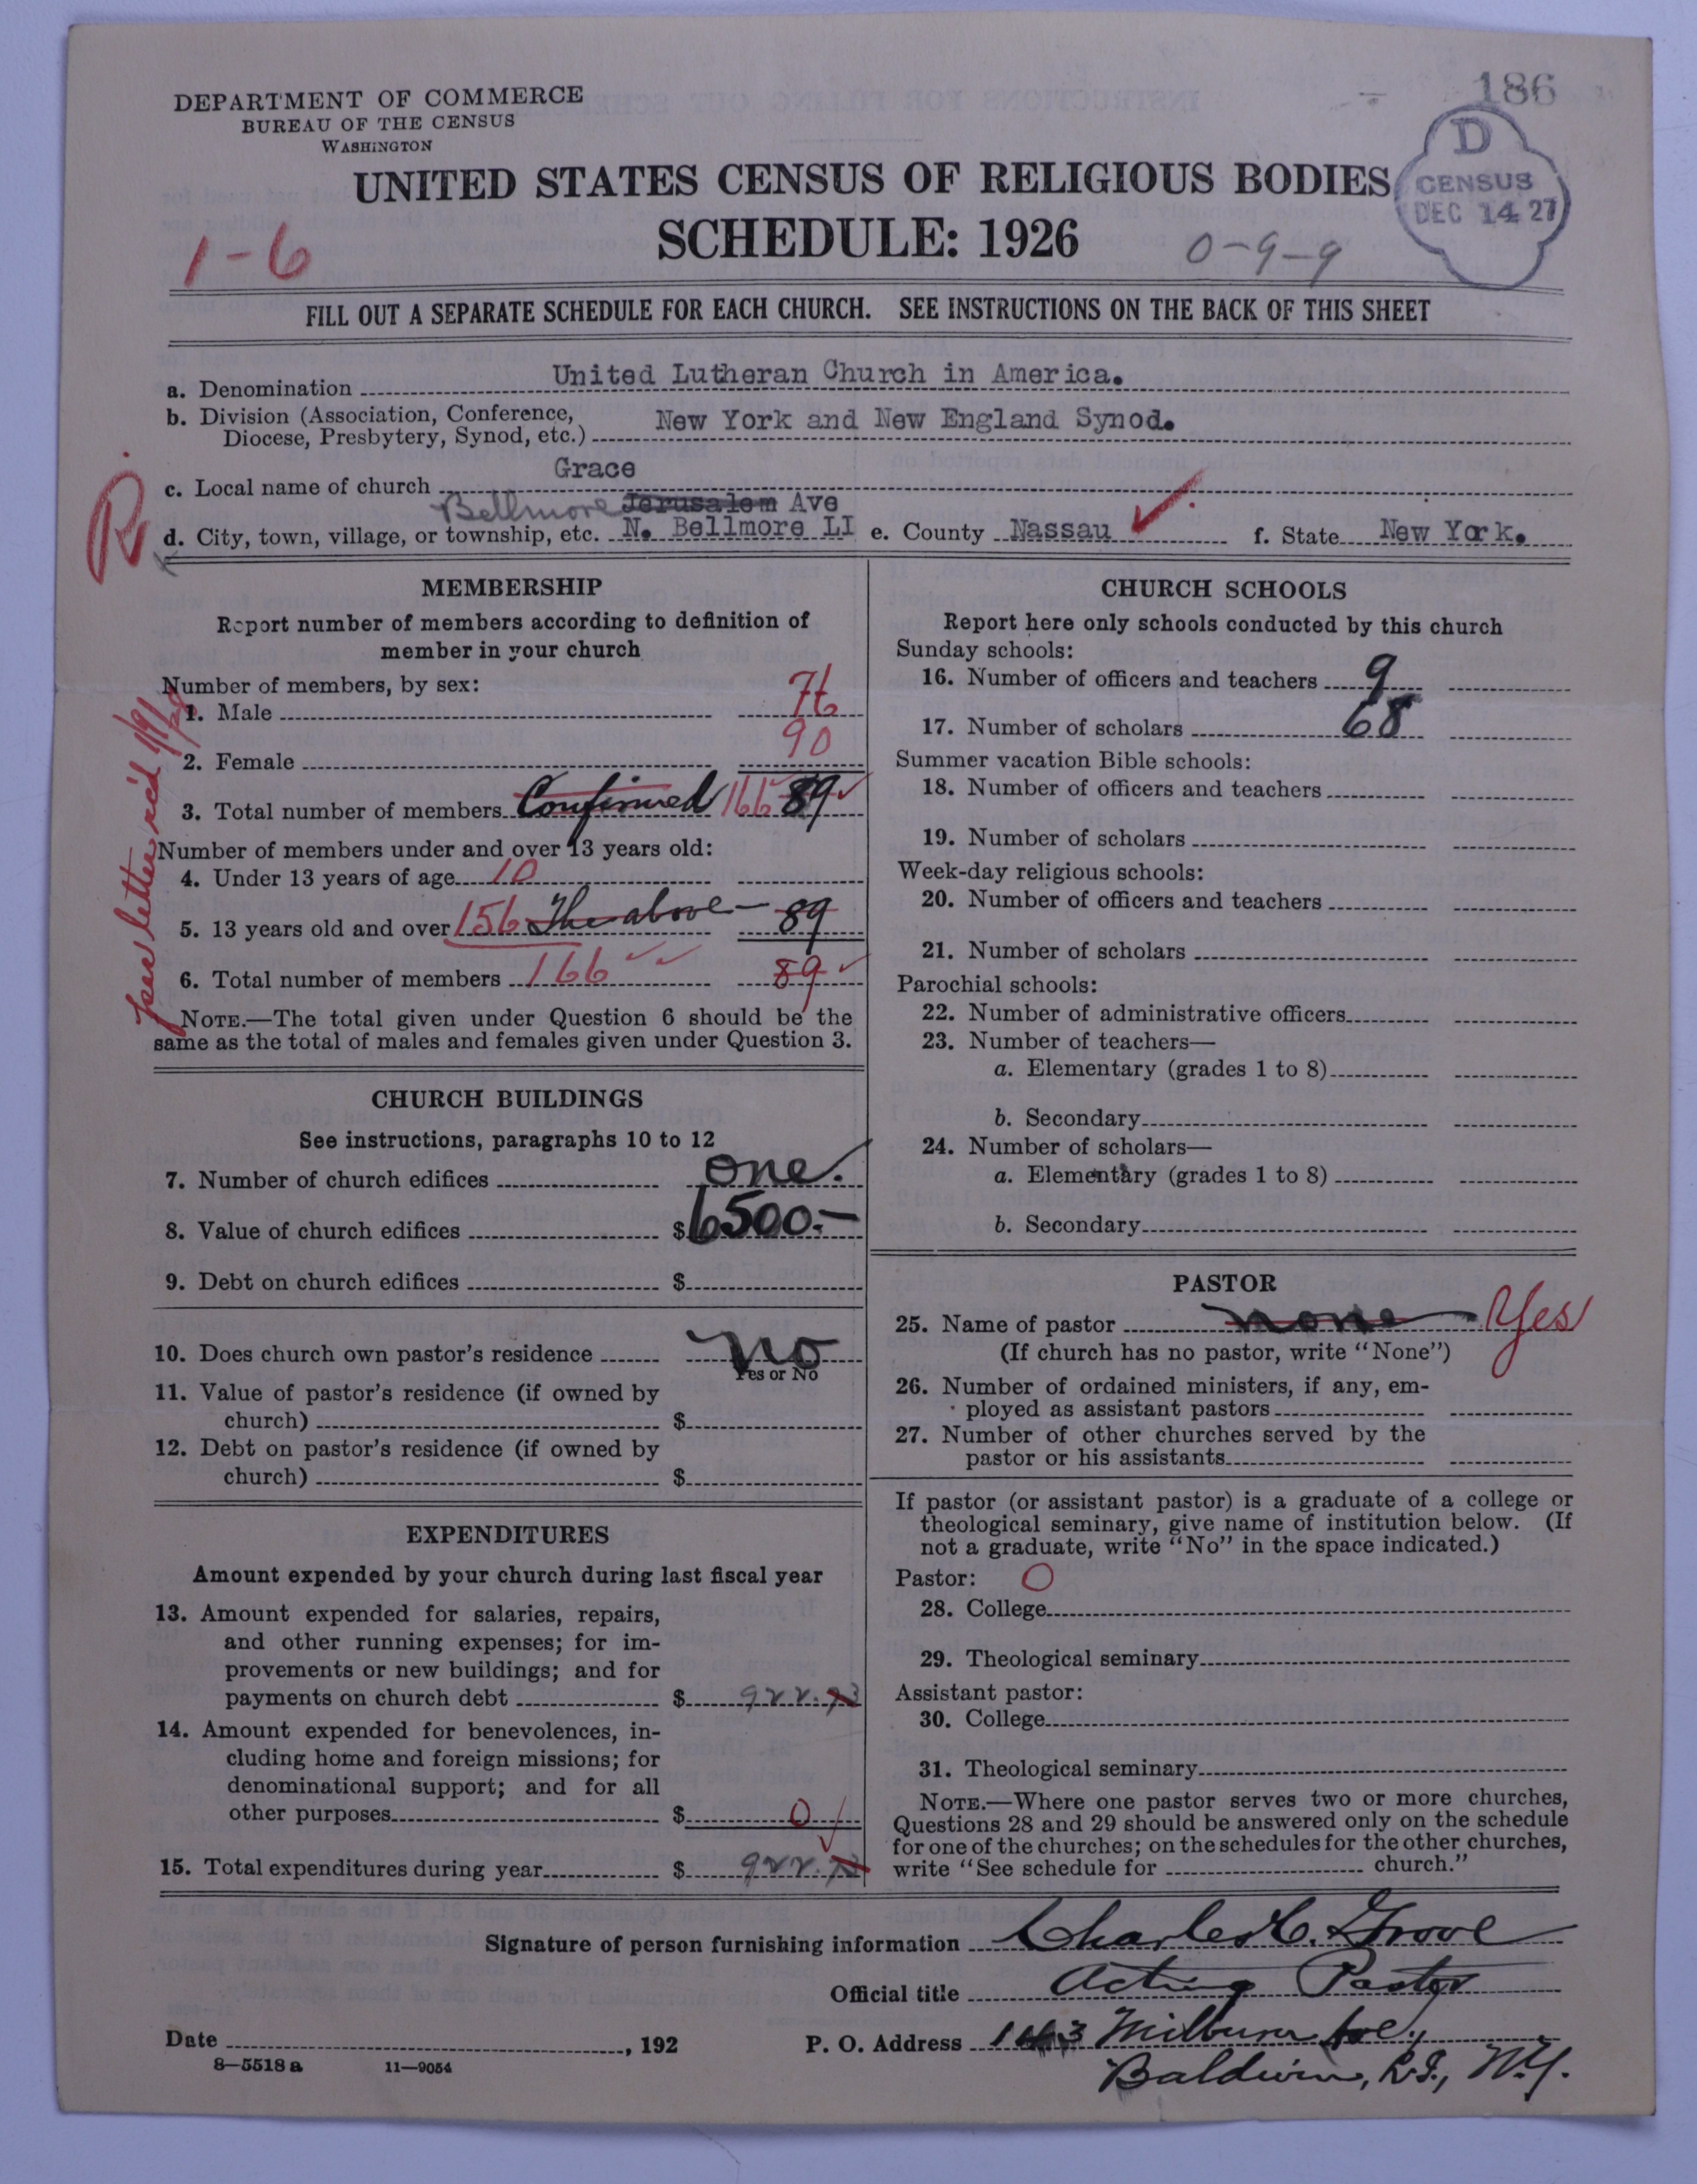 186
DEPARTMENT OF COMMERCE
BUREAU OF THE CENSUS
WASHINGTON
D
CENSUS
DEC 14 27
UNITED STATES CENSUS OF RELIGIOUS BODIES
SCHEDULE: 1926
1-6
0-9-9
FILL OUT A SEPARATE SCHEDULE FOR EACH CHURCH. SEE INSTRUCTIONS ON THE BACK OF THIS SHEET
a. Denomination United Lutheran Church in America.
b. Division (Association, Conference, Diocese, Presbytery, Synod, etc.) New York and New England Synod.
c. Local name of church Grace
Bellmore Jerusalem Ave
R
d. City, town, village, or township, etc. N. Bellmore LI e. County Nassau f. State New York.
MEMBERSHIP
Report number of members according to definition of
member in your church
Number of members, by sex:
1. Male 76
2. Female 90
3. Total number of members Confirmed 166 89
Number of members under and over 13 years old:
4. Under 13 years of age 10
5. 13 years old and over 156 The above - 89
6. Total number of members 166 89
NOTE.—The total given under Question 6 should be the
same as the total of males and females given under Question 3.
per letter rec'd
CHURCH BUILDINGS
See instructions, paragraphs 10 to 12
7. Number of church edifices one.
8. Value of church edifices $6500.—
9. Debt on church edifices $
10. Does church own pastor's residence No
Yes or No
11. Value of pastor's residence (if owned by
church) $
12. Debt on pastor's residence (if owned by
church) $
EXPENDITURES
Amount expended by your church during last fiscal year
13. Amount expended for salaries, repairs,
and other running expenses; for im-
provements or new buildings; and for
payments on church debt $ 922.73
14. Amount expended for benevolences, in-
cluding home and foreign missions; for
denominational support; and for all
other purposes $ 0
15. Total expenditures during year $ 922.73
CHURCH SCHOOLS
Report here only schools conducted by this church
Sunday schools:
16. Number of officers and teachers 9
17. Number of scholars 68
Summer vacation Bible schools:
18. Number of officers and teachers
19. Number of scholars
Week-day religious schools:
20. Number of officers and teachers
21. Number of scholars
Parochial schools:
22. Number of administrative officers
23. Number of teachers—
a. Elementary (grades 1 to 8)
b. Secondary
24. Number of scholars—
a. Elementary (grades 1 to 8)
b. Secondary
PASTOR
25. Name of pastor none Yes
(If church has no pastor, write "None")
26. Number of ordained ministers, if any, em-
ployed as assistant pastors
27. Number of other churches served by the
pastor or his assistants
If pastor (or assistant pastor) is a graduate of a college or
theological seminary, give name of institution below. (If
not a graduate, write "No" in the space indicated.)
Pastor: O
28. College
29. Theological seminary
Assistant pastor:
30. College
31. Theological seminary
NOTE.—Where one pastor serves two or more churches,
Questions 28 and 29 should be answered only on the schedule
for one of the churches; on the schedules for the other churches,
write "See schedule for church."
Signature of person furnishing information Charles C. Grove
Official title Acting Pastor
Date , 192
P. O. Address 143 Milburn Ave.,
Baldwin, L.I., N.Y.
8—5518 a 11—9054